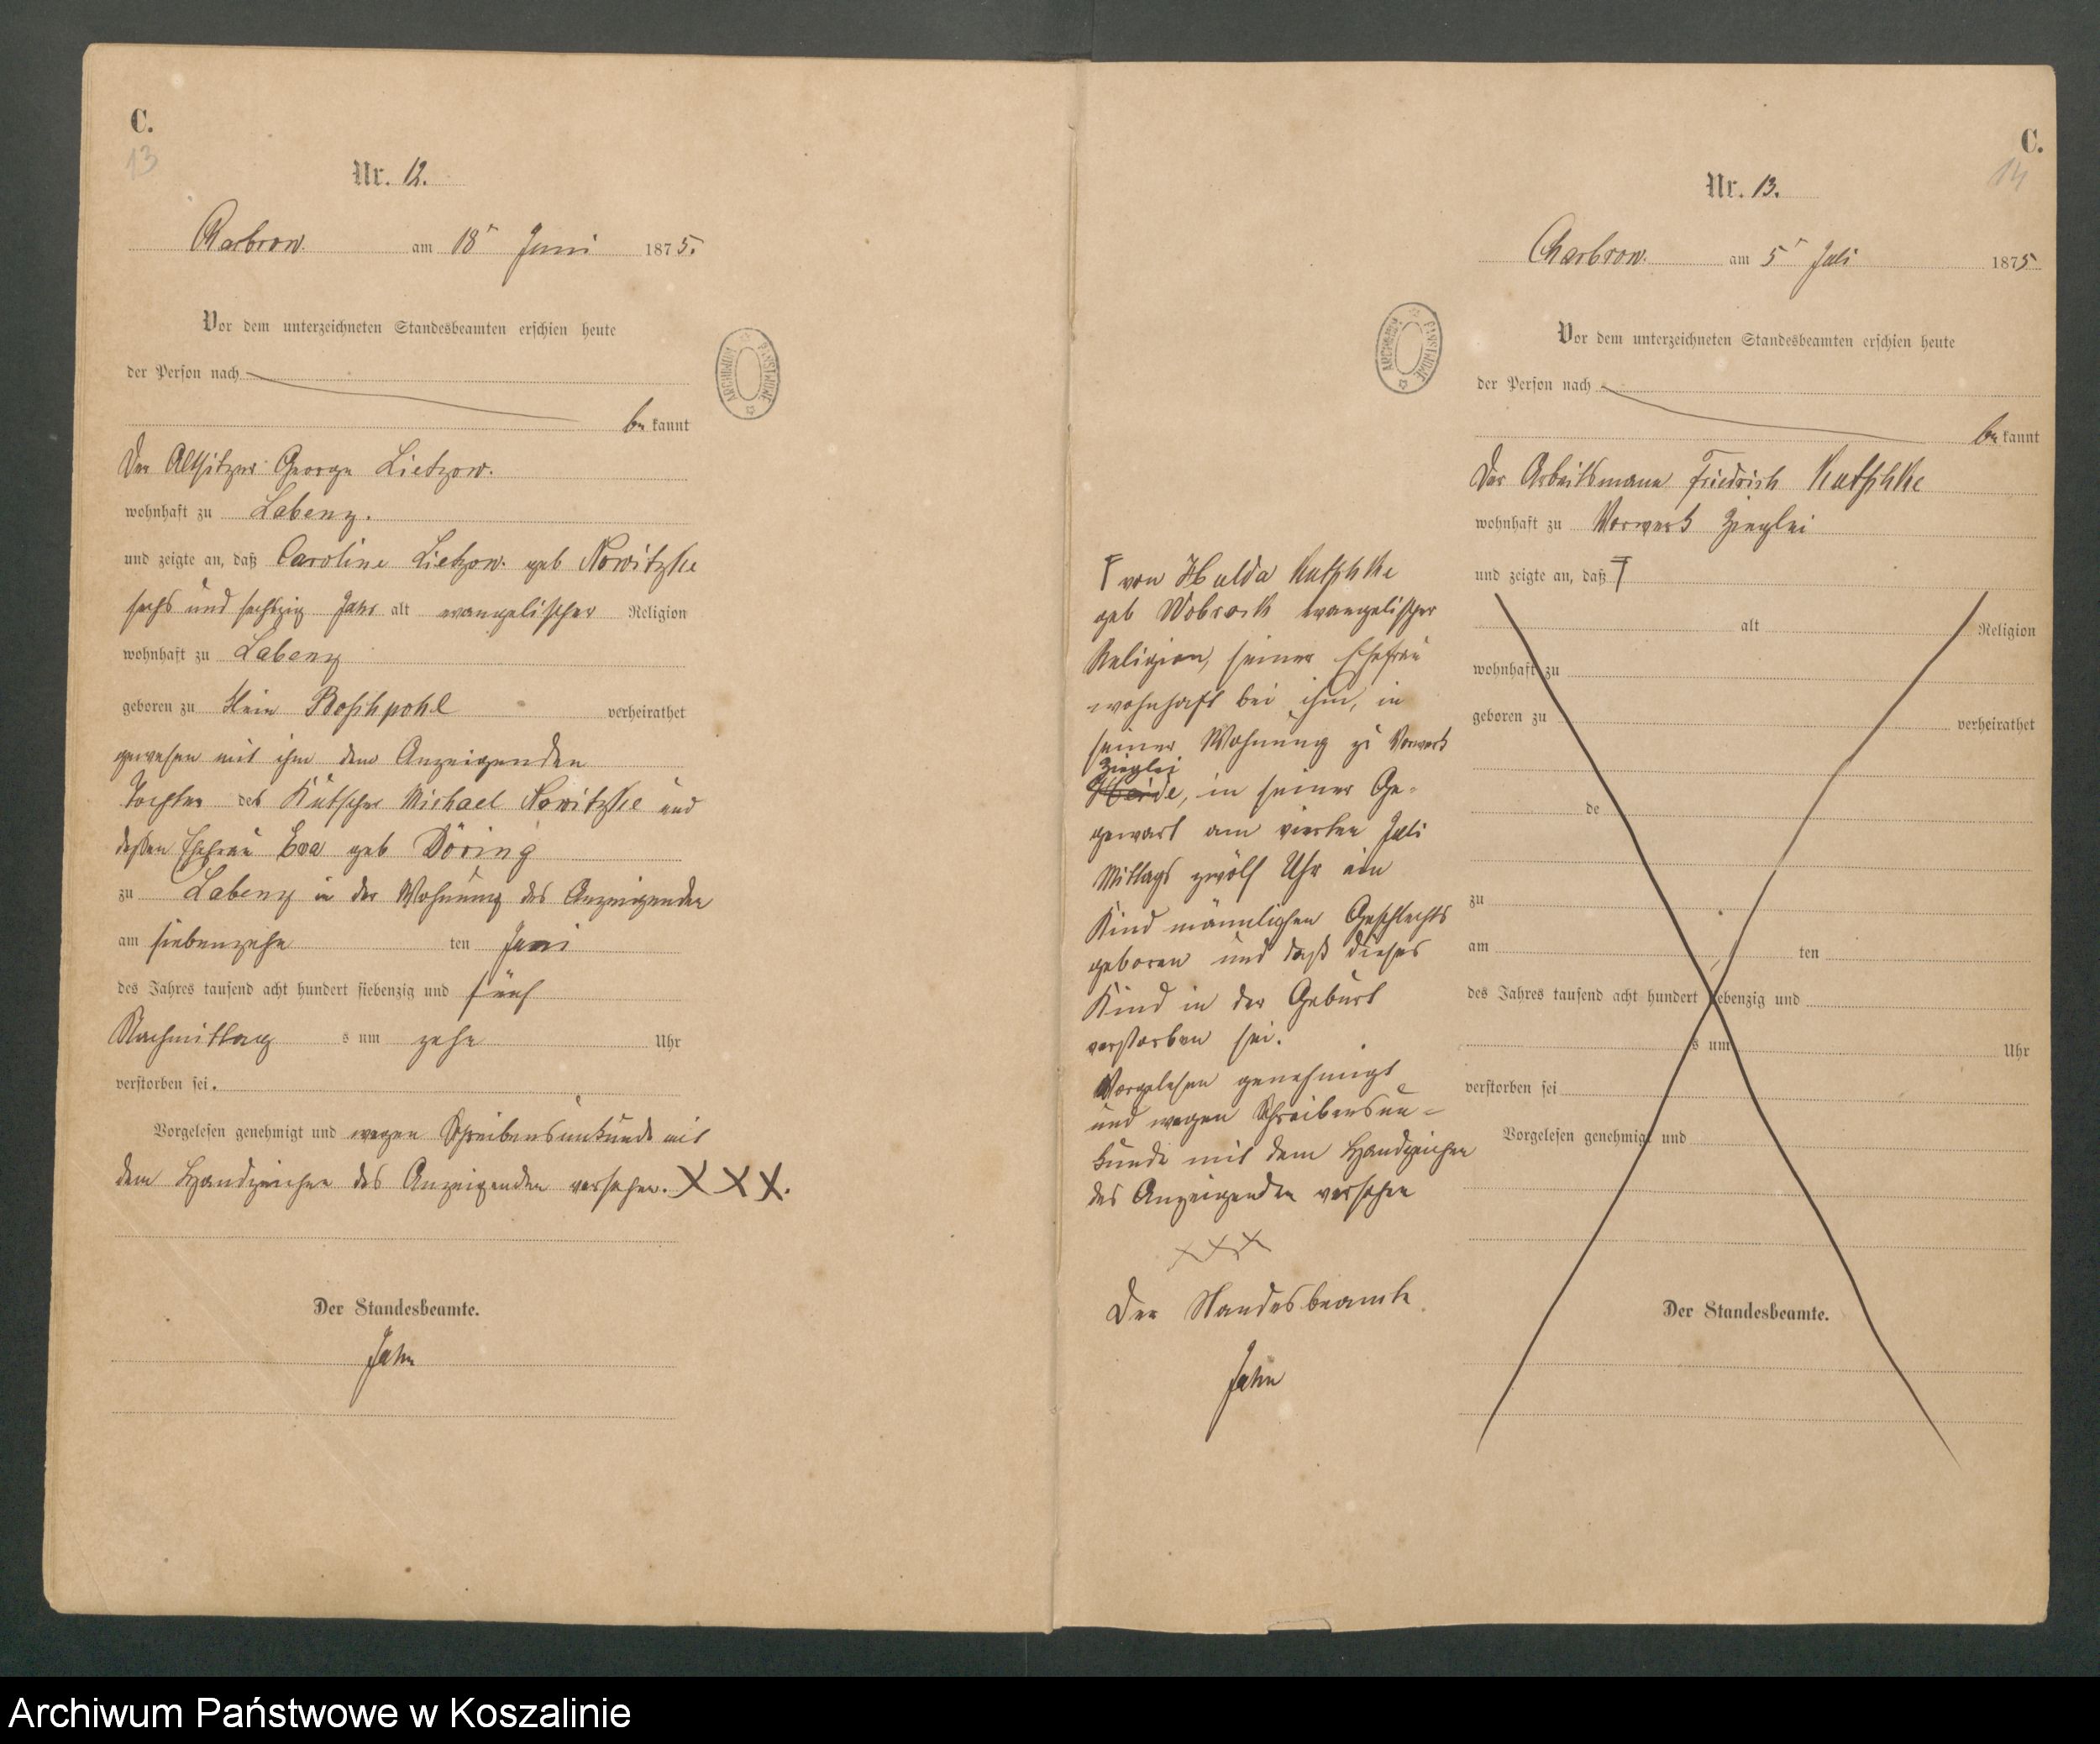 C.
13
Nr. 12.
Charbrow. am 18t Juni 1875.
Vor dem unterzeichneten Standesbeamten erschien heute
der Person nach
bekannt
Der Altsitzer George Lietzow.
wohnhaft zu Labenz.
und zeigte an, daß Caroline Lietzow. geb Nowitzke
sechs und sechszig Jahr alt evangelischer Religion
wohnhaft zu Labenz
geboren zu Klein Boschpohl verheirathet
gewesen mit ihm dem Anzeigenden
Tochter des Kutscher Michael Nowitzke und
dessen Ehefrau Eva geb Döring
zu Labenz in der Wohnung des Anzeigenden
am siebenzehn ten Juni
des Jahres tausend acht hundert siebenzig und fünf
Nachmittag s um zehn Uhr
verstorben sei.
Vorgelesen genehmigt und wegen Schreibensunkunde mit
dem Handzeichen des Anzeigenden versehen. XXX.
Der Standesbeamte.
Jahn
ARCHIWUM PAŃSTWOWE
C.
14
Nr. 13.
Charbrow. am 5t Juli 1875
Vor dem unterzeichneten Standesbeamten erschien heute
der Person nach
bekannt
Der Arbeitsmann Friedrich Kutschke
wohnhaft zu Vorwerk Ziegelei
und zeigte an, daß
alt Religion
wohnhaft zu
geboren zu verheirathet
de
zu
am ten
des Jahres tausend acht hundert siebenzig und
s um Uhr
verstorben sei
Vorgelesen genehmigt und
Der Standesbeamte.
ARCHIWUM PAŃSTWOWE
von Hulda Kutschke
geb evangelischer
Religion, seiner Ehefrau
wohnhaft bei ihm, in
seiner Wohnung zu Vorwerk
Ziegelei
in seiner Ge-
genwart am vierten Juli
Mittags zwölf Uhr ein
Kind männlichen Geschlechts
geboren und daß dieses
Kind in der Geburt
verstorben sei.
Vorgelesen genehmigt
und wegen Schreibensun-
kunde mit dem Handzeichen
des Anzeigenden versehen
XXX
Der Standesbeamte
Jahn
Archiwum Państwowe w Koszalinie